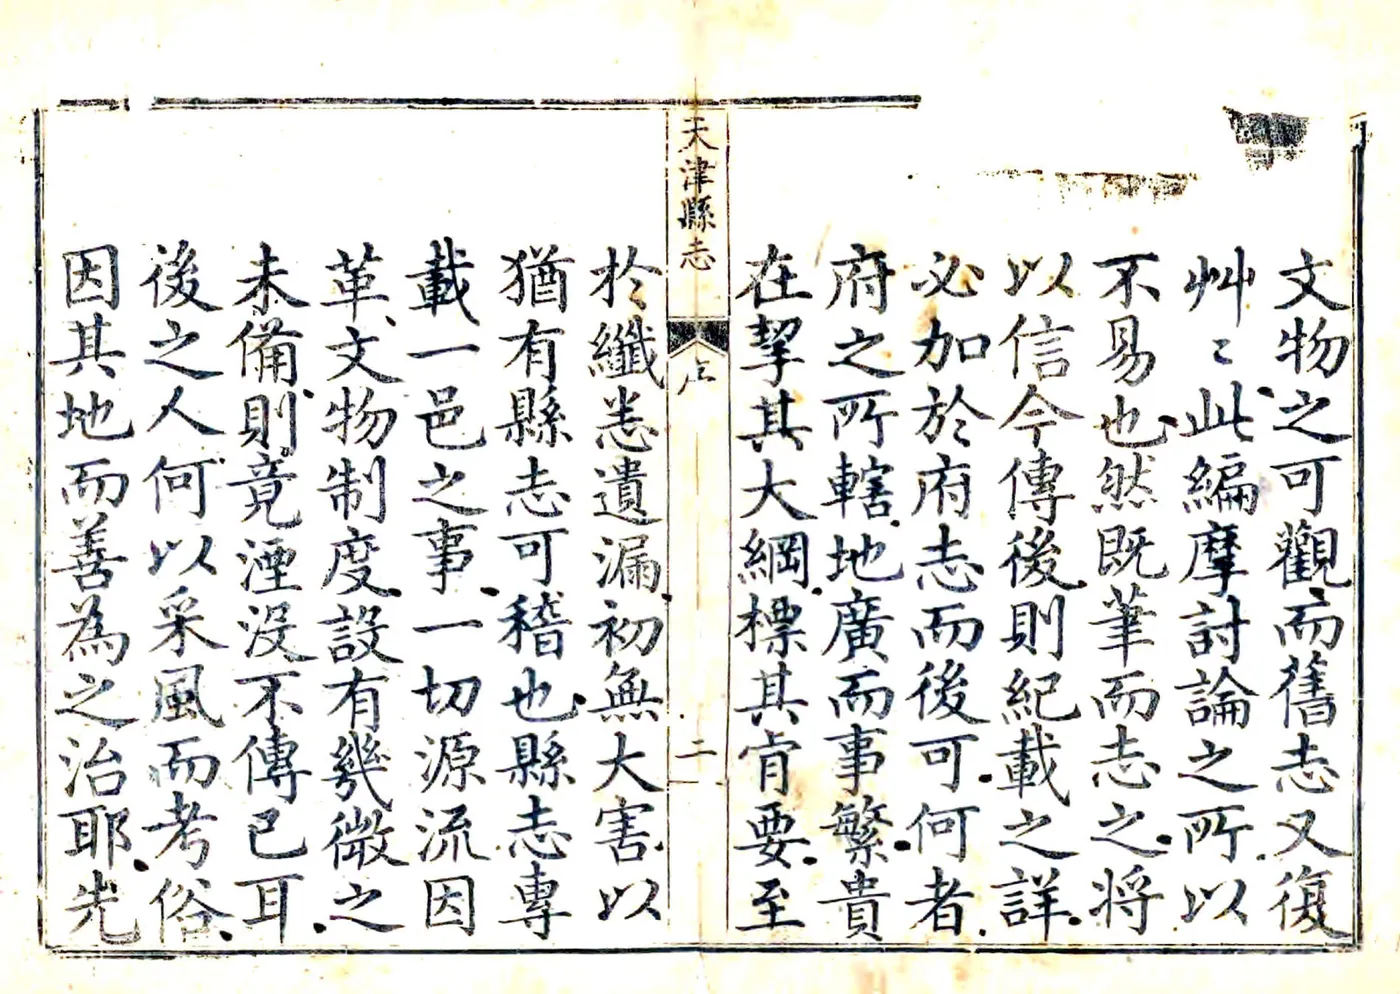 文物之可觀而舊志又復
艸〻此編摩討論之所以
不易也然既筆而志之將
以信今傳後則紀載之詳
必加於府志而後可何者
府之所轄地廣而事繁貴
在挈其大綱標其肯要至
天津縣志
序
二
於纖悉遺漏初無大害以
猶有縣志可稽也縣志專
載一邑之事一切源流因
革文物制度設有幾微之
未備則竟湮没不傳已耳
後之人何以采風而考俗
因其地而善為之治耶先